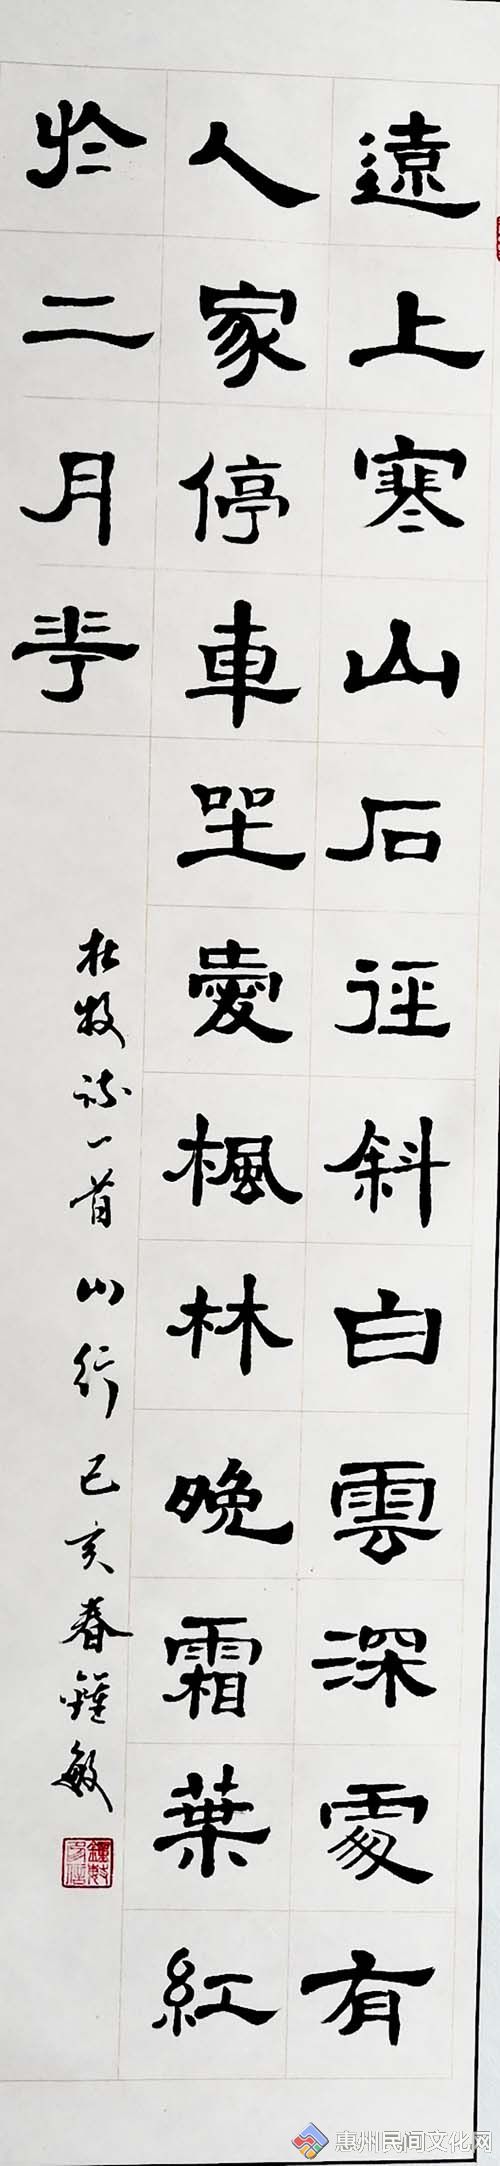 遠上寒山石徑斜白雲深處有
人家停車坐愛楓林晚霜葉紅
於二月花
杜牧詩一首 山行 己亥春鍾敏
惠州民间文化网